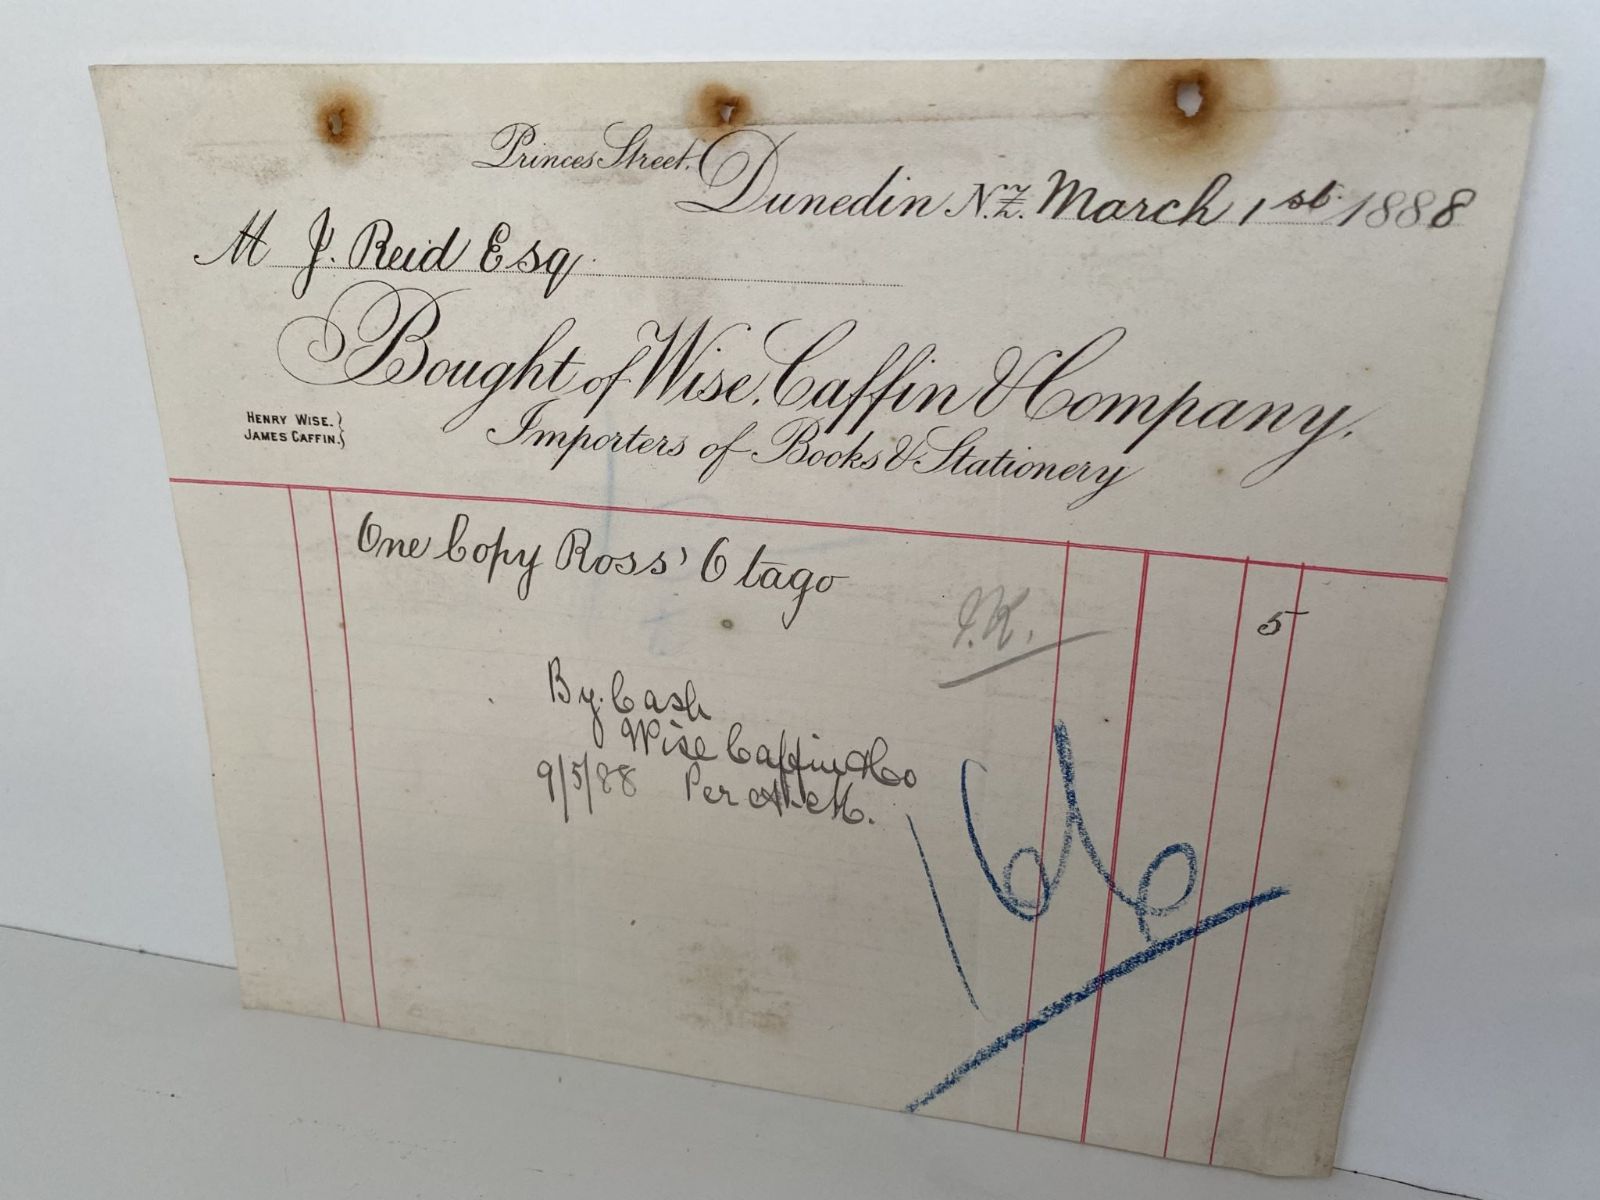 Princes Street, Dunedin N.Z. March 1st. 1888
M J. Reid Esq.
Bought of Wise, Caffin & Company,
HENRY WISE.
JAMES CAFFIN.
Importers of Books & Stationery
One Copy Ross' Otago 5
By Cash
Wise Caffin & Co
9/5/88 Per
166